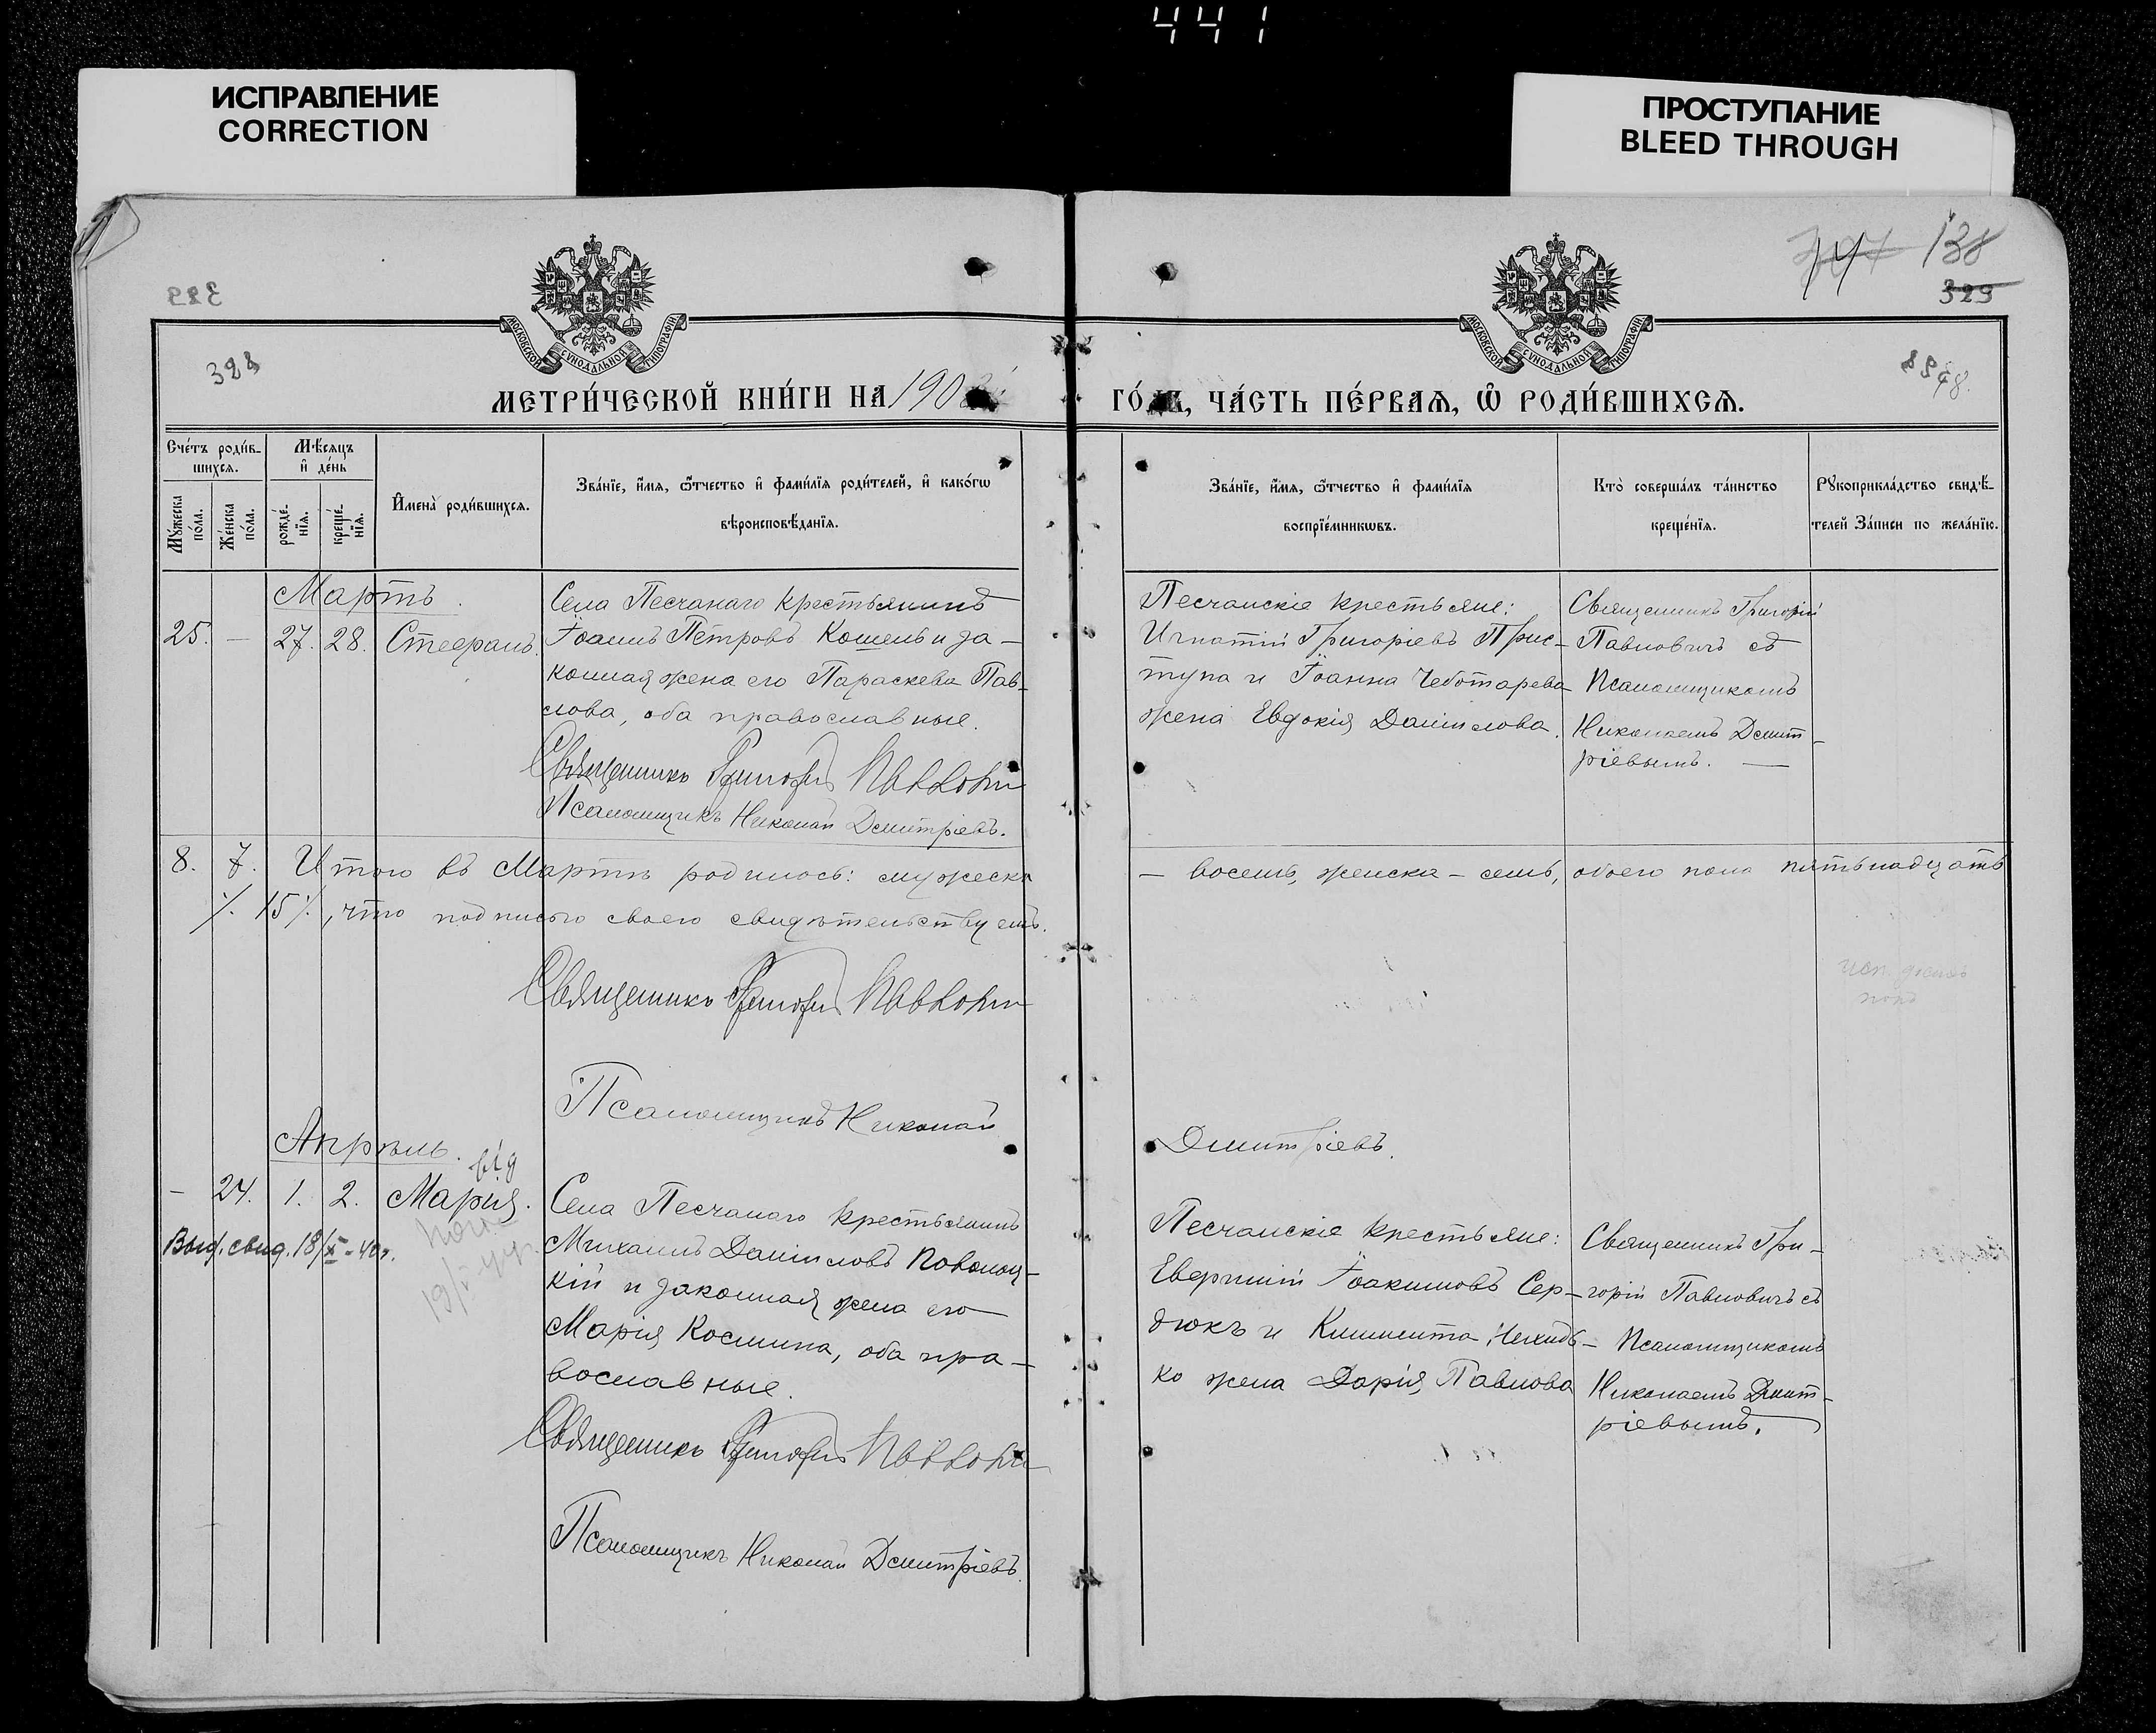 441
ИСПРАВЛЕНИЕ
CORRECTION
ПРОСТУПАНИЕ
BLEED THROUGH
138
329
328
МОСКОВСКОЙ СУНОДАЛЬНОЙ ТИПОГРАФІИ
МОСКОВСКОЙ СУНОДАЛЬНОЙ ТИПОГРАФІИ
МЕТРИ́ЧЕСКОЙ КНИ́ГИ НА 190
ГО́ДЪ, ЧА́СТЬ ПЕ́РВАѦ, Ѡ҆ РОДИ́ВШИХСѦ.
Сче́тъ роди́в-
шихсѧ.
Мꙋ́жеска по́ла.
Же́нска по́ла.
Мѣ́сѧцъ
и҆ де́нь
рожде́-
нїѧ.
креще́-
нїѧ.
И҆мена̀ роди́вшихсѧ.
Зва́нїе, и҆́мѧ, ѻ҆́тчество и҆ фами́лїѧ роди́телей, и҆ како́гѡ
вѣроисповѣ́данїѧ.
Зва́нїе, и҆́мѧ, ѻ҆́тчество и҆ фами́лїѧ
воспрїе́мникѡвъ.
Кто̀ соверша́лъ та́инство
креще́нїѧ.
Рꙋкоприкла́дство свидѣ́-
телей За́писи по жела́нїю.
Мартъ.
25. — 27. 28. Стефанъ.
Села Песчанаго крестьянинъ
Іоаннъ Петровъ Кошель и за-
конная жена его Параскева Пав-
лова, оба православные.
Священникъ Григорій Павловичъ
Псаломщикъ Николай Дмитріевъ.
Песчанскіе крестьяне:
Игнатій Григоріевъ Прис-
тупа и Іоанна Чеботарева
жена Евдокія Даніилова.
Священникъ Григорій
Павловичъ съ
Псаломщикомъ
Николаемъ Дмит-
ріевымъ. —
8. 7. Итого въ Мартѣ родилось: мужеска
— восемь, женска — семь, обоего пола пятьнадцать
/. 15 /., что подписью своею свидѣтельствуемъ.
Священникъ Григорій Павловичъ
Псаломщикъ Николай
Дмитріевъ.
Апрѣль.
від
— 24. 1. 2. Марія.
Выд. свид. 18/X-40г.
Села Песчанаго крестьянинъ
Михаилъ Даніиловъ Поволоц-
кій и законная жена его
Марія Космина, оба пра-
вославные.
Священникъ Григорій Павловичъ
Псаломщикъ Николай Дмитріевъ.
Песчанскіе крестьяне:
Іоакимовъ Сер-
дюкъ и Климента
ко жена Дарія Павлова
Священникъ Гри-
горій Павловичъ съ
Псаломщикомъ
Николаемъ Дмит-
ріевымъ.